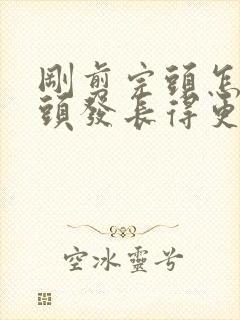 剛剪完頭怎
頭發長得更
空冰靈兮